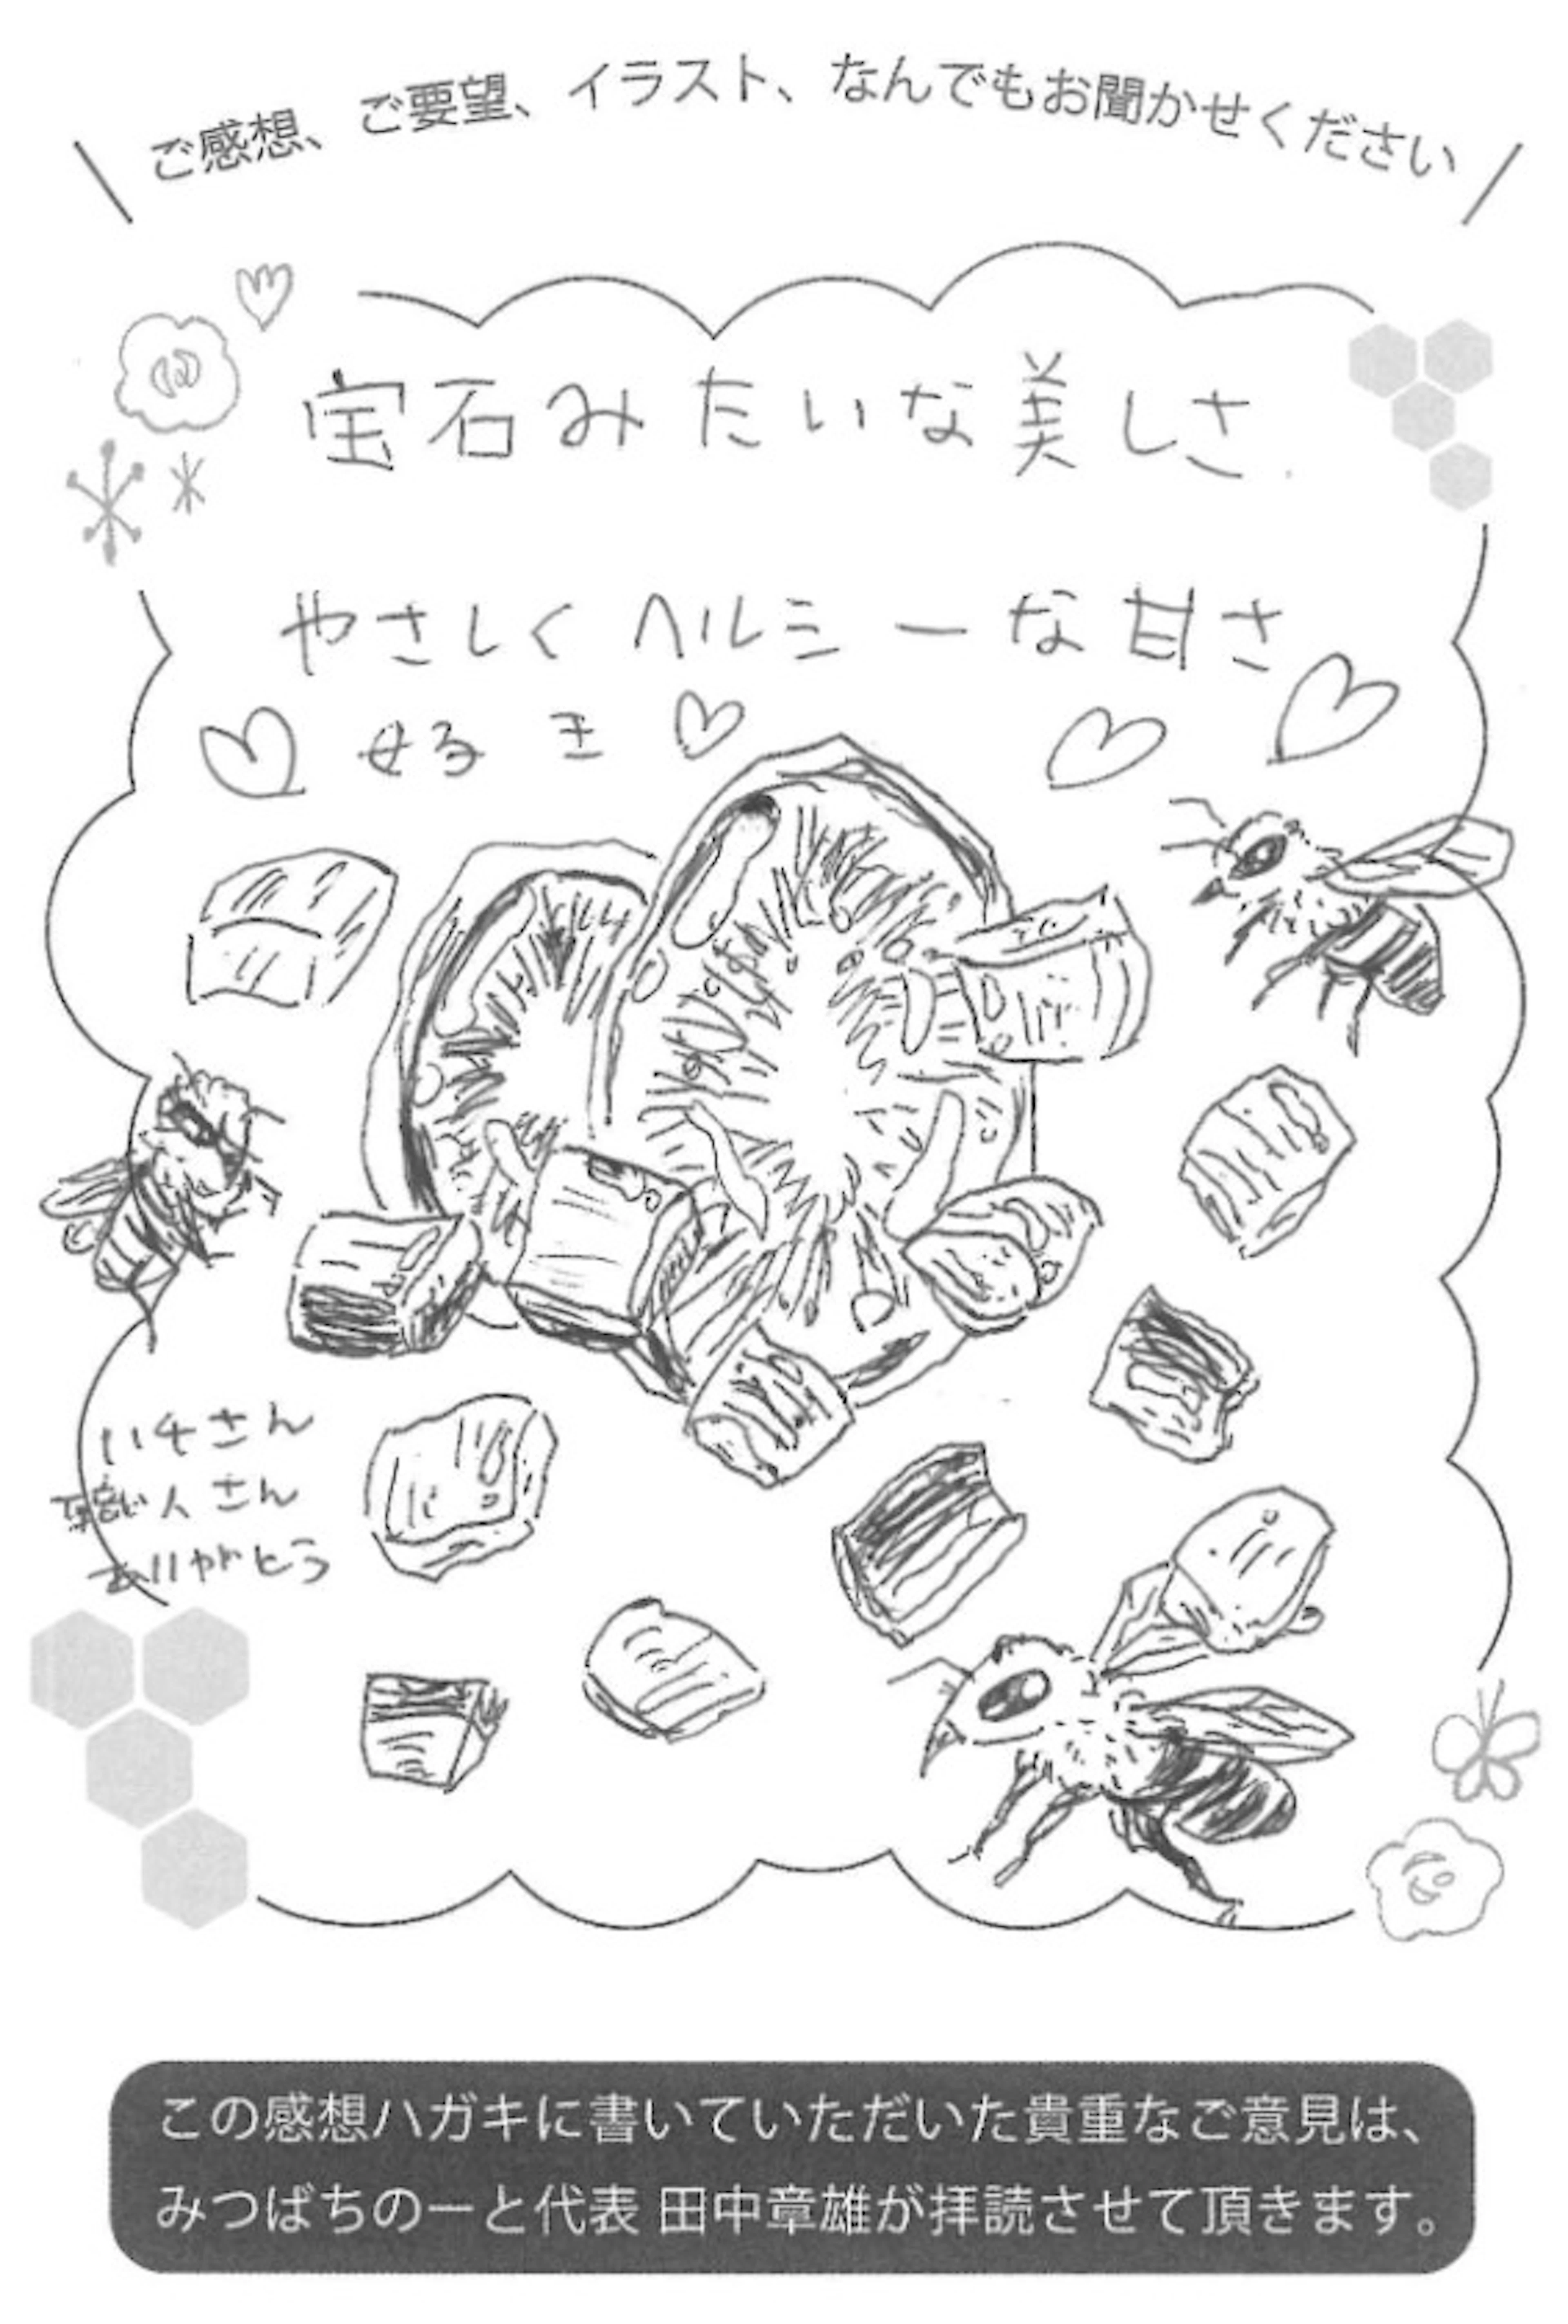 ご感想、ご要望、イラスト、なんでもお聞かせください
宝石みたいな美しさ
やさしくヘルシーな甘さ
好き
ハチさん
人さん
ありがとう
この感想ハガキに書いていただいた貴重なご意見は、
みつばちのーと代表 田中章雄が拝読させて頂きます。